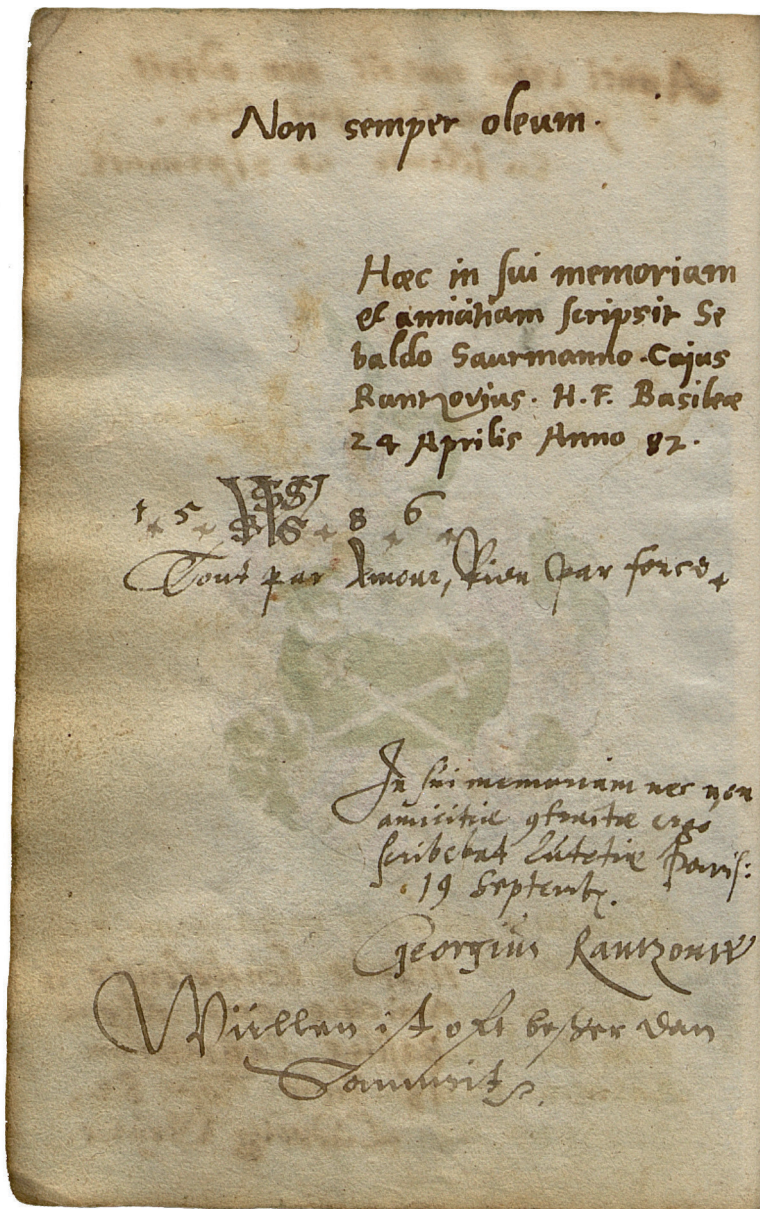 Non semper oleum.
Hæc in sui memoriam
et amicitiam scripsit Se
baldo Saurmanno. Cajus
Rantzovius. H. F. Basileæ
24 Aprilis Anno 82.
1. 5. 8. 6.
Tout par Amour, Rien par force.
In sui memoriam nec non
amicitiæ ergo
scribebat Lutetiæ Paris:
19 Septemb.
Georgius Rantzouw
Wüllen ist oft beßer dan
Sammit